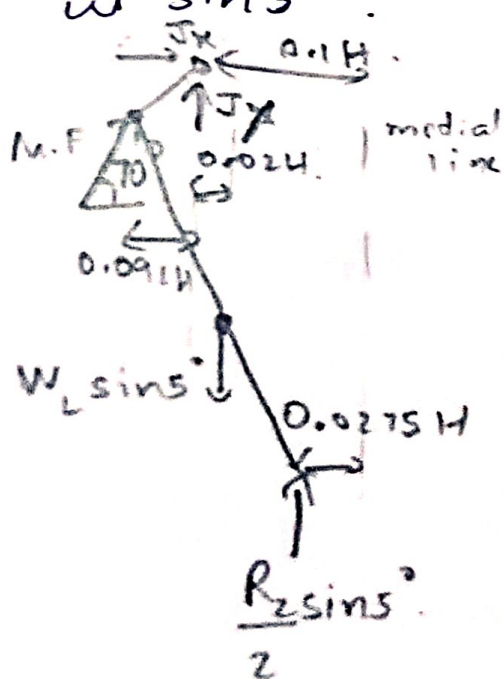 W sin5°.
Jx
0.1H.
Jy
M.F
70
0.02H.
medial
line
0.091H
W_L sin5°
0.0275H
R_2 sin5°.
2